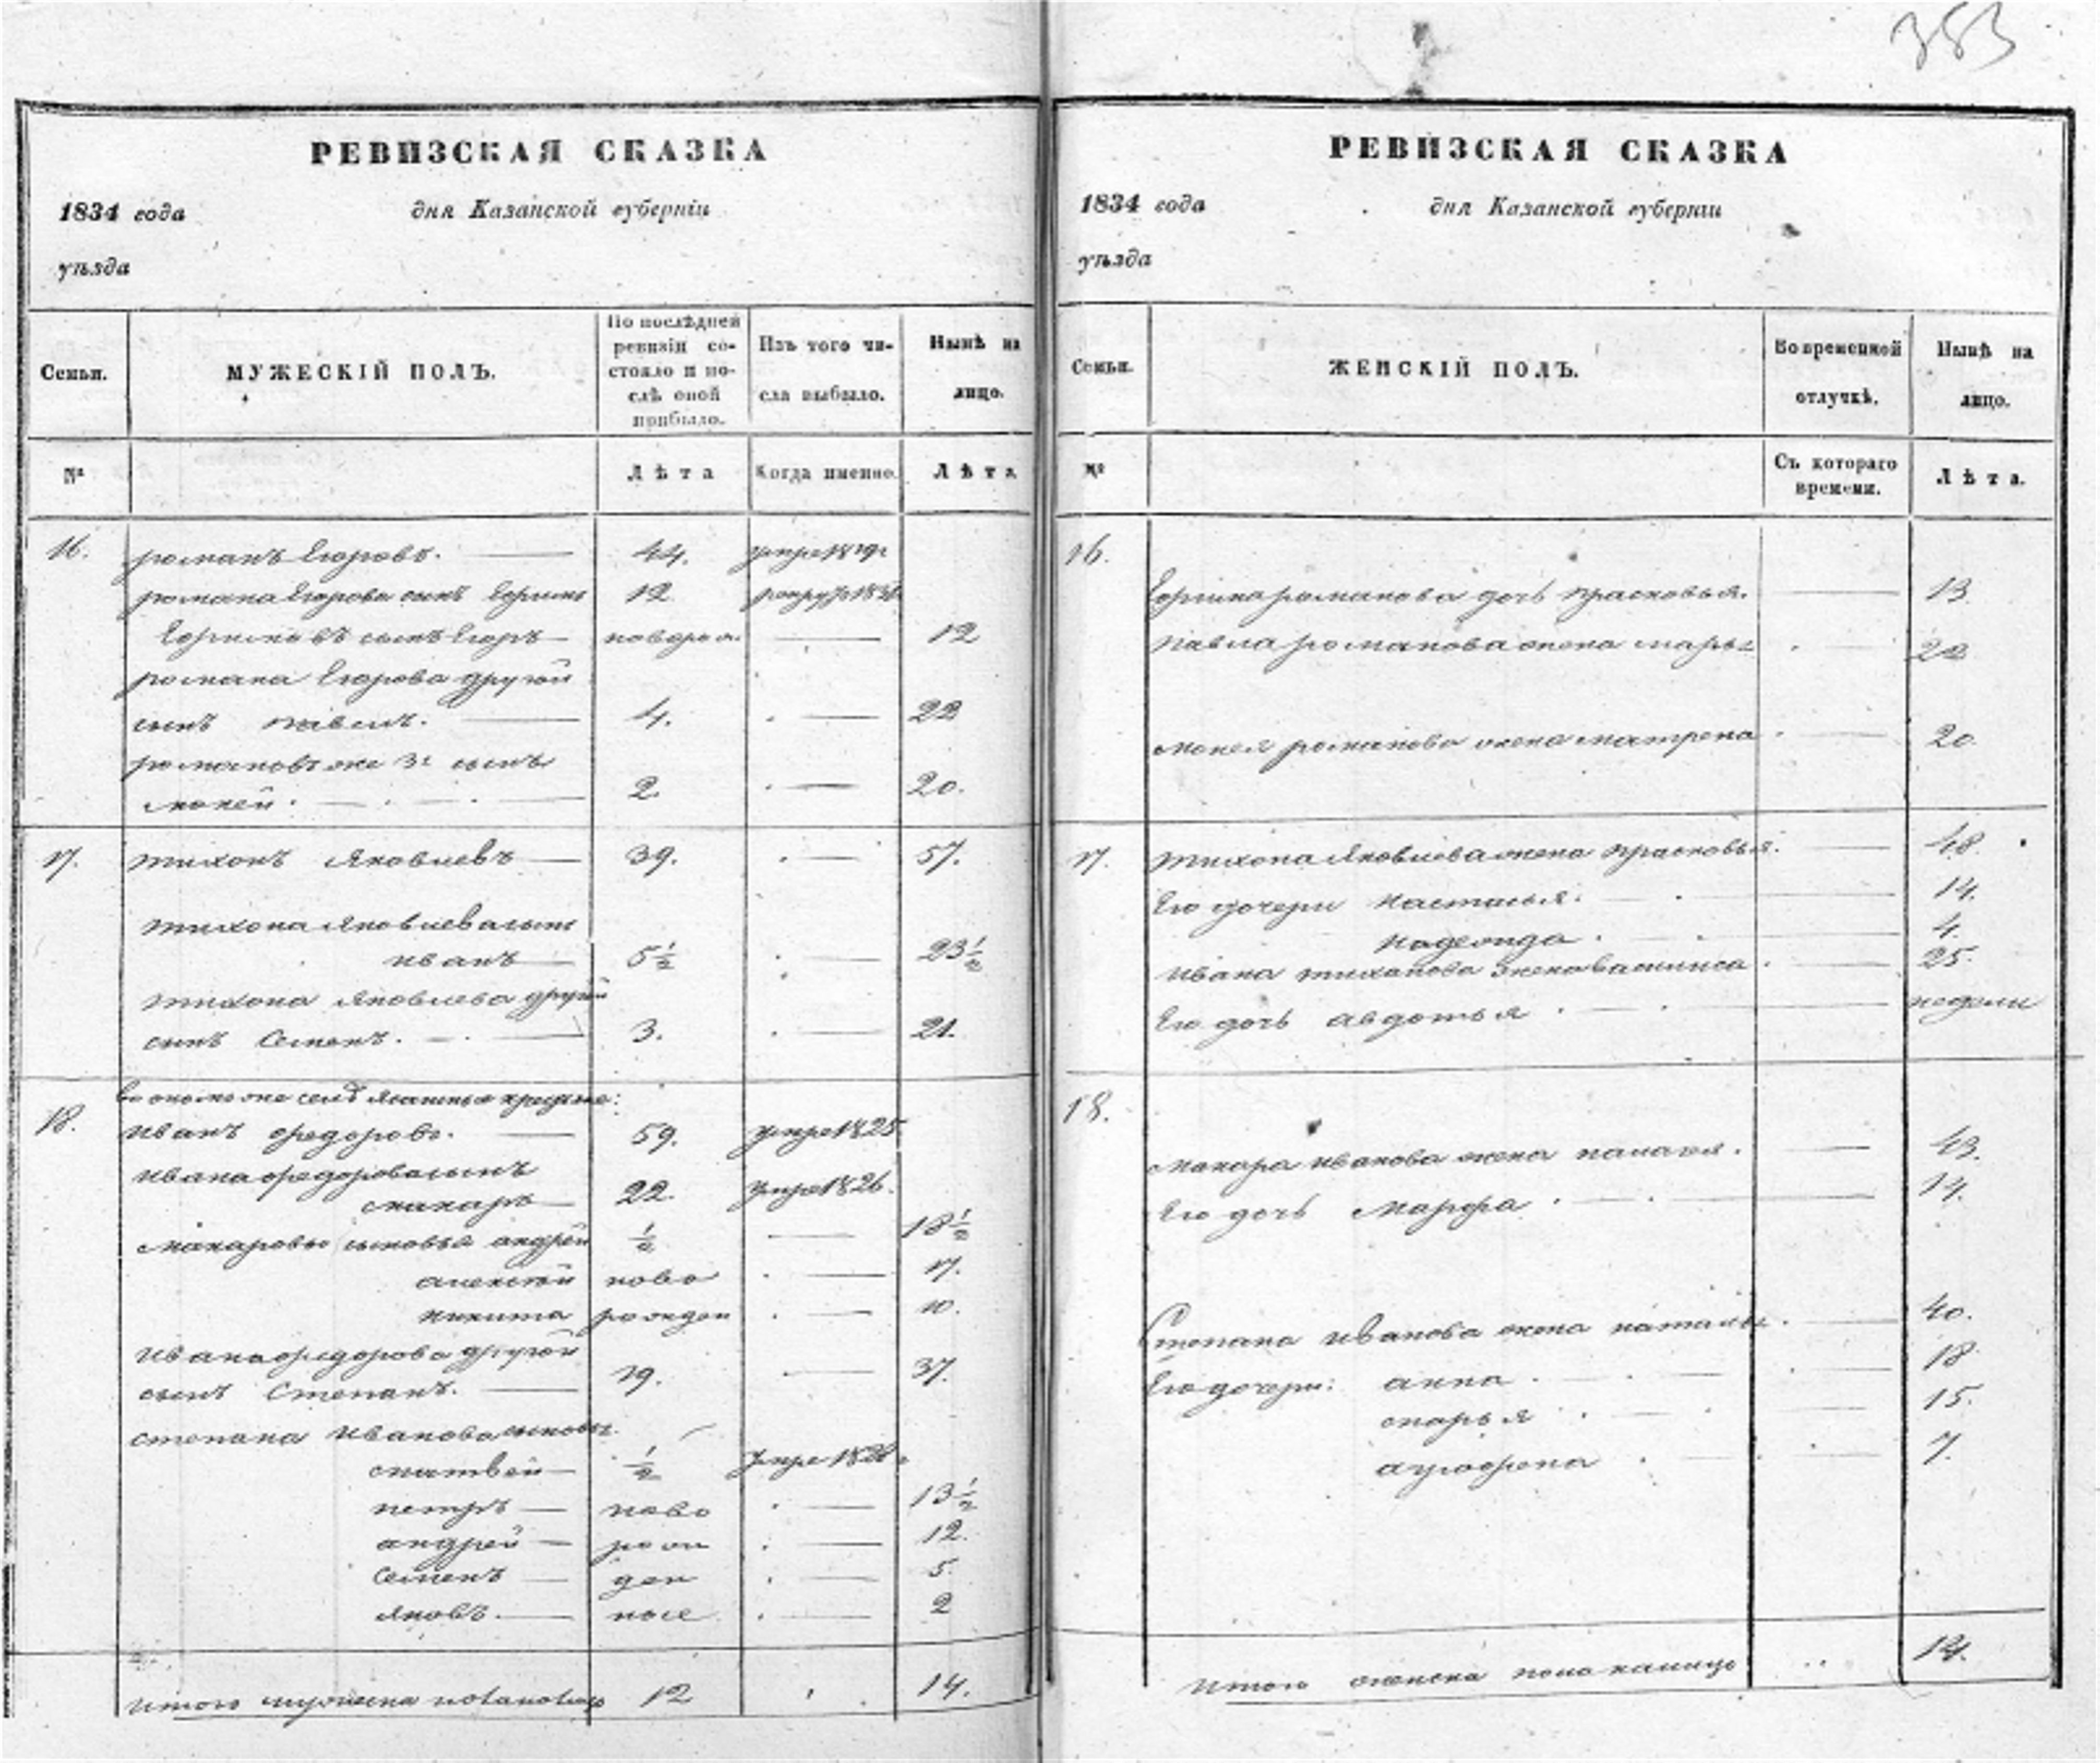 383
РЕВИЗСКАЯ СКАЗКА
1834 года дня Казанской губерніи
уѣзда
Семьи. МУЖЕСКІЙ ПОЛЪ. По послѣдней ревизіи состояло и послѣ оной прибыло. Изъ того числа выбыло. Нынѣ на лицо.
№ Лѣта Когда именно. Лѣта
16. романъ Егоровъ. 44. умре 1819
романа Егорова сынъ 12
сынъ Егоръ новорож. 12
романа Егорова другой
сынъ павелъ. 4. 22
романовъ же 3й сынъ
мокей. 2. 20.
17. тихонъ Яковлевъ 39. 57.
тихона Яковлева сынъ
иванъ 5½ 23½
тихона Яковлева другой
сынъ Семенъ. 3. 21.
во ономъ же селѣ ясашные
18. иванъ федоровъ. 59. умре 1825
ивана федорова сынъ
макаръ 22. умре 1826.
макаровы сыновья андрей ½ 18½
алексей ново 17.
никита рожден 10.
ивана федорова другой
сынъ Степанъ. 19. 37.
степана иванова сыновья
матвей ½ умре
петръ ново 13½
андрей рож 12.
Семенъ ден 5
яковъ. ные 2
итого мужеска пола налицо 12 14.
РЕВИЗСКАЯ СКАЗКА
1834 года дня Казанской губерніи
уѣзда
Семьи. ЖЕНСКІЙ ПОЛЪ. Во временной отлучкѣ. Нынѣ на лицо.
№ Съ котораго времени. Лѣта.
16.
романова дочь прасковья. 13.
павла романова жена марья 22
мокея романова жена матрена 20.
17. тихона Яковлева жена прасковья. 48.
Его дочери настасья. 14.
надежда. 4.
ивана тихонова жена василиса. 25.
Его дочь авдотья. недели
18.
макара иванова жена палагея. 43.
Его дочь марфа. 14.
Степана иванова жена наталья. 40.
Его дочери: анна. 18
марья 15.
аграфена 7.
итого женска пола налицо 14.